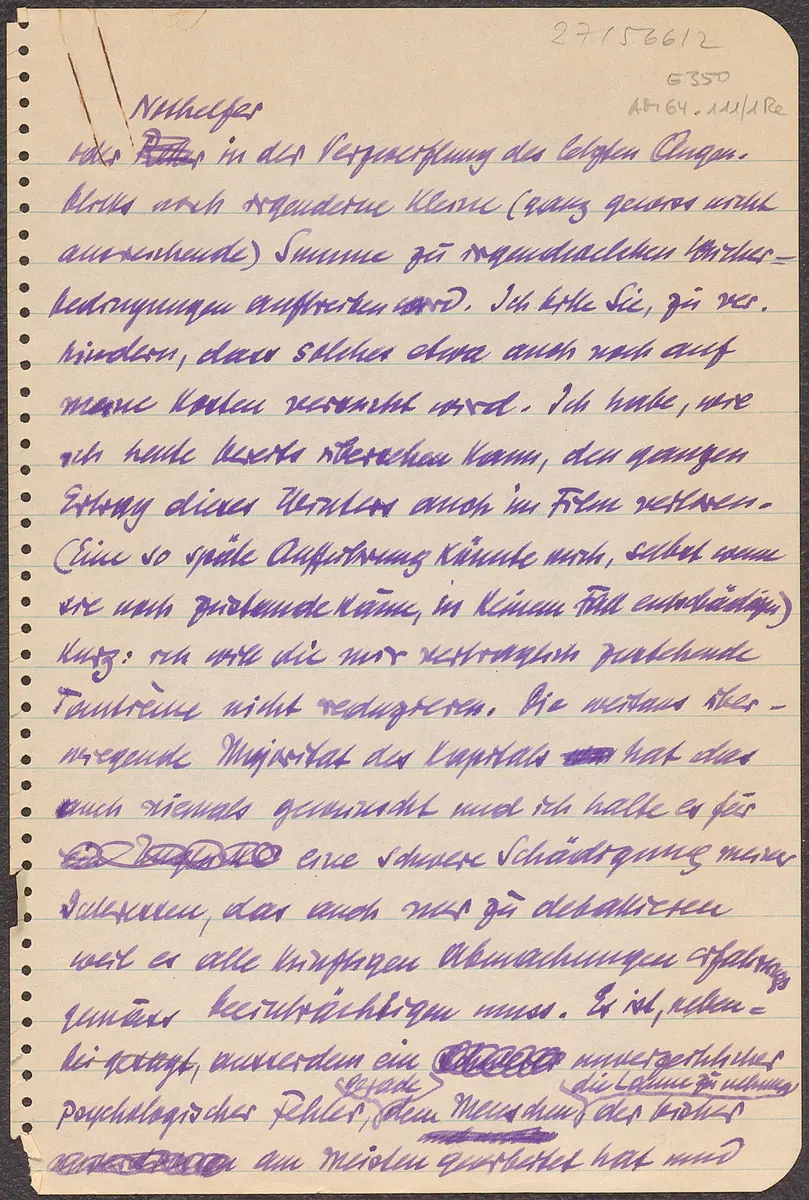 27/56612
E350
AM 64.111/1Re
Nothelfer
oder in der Verzweiflung des letzten Augen-
blicks noch irgendeine kleine (ganz gewiss nicht
ausreichende) Summe zu irgendwelchen Wucher=
bedingungen auftreiben wird. Ich bitte Sie, zu ver-
hindern, dass solches etwa auch noch auf
meine Kosten versucht wird. Ich habe, wie
ich heute bereits übersehen kann, den ganzen
Ertrag dieses Winters auch im Film verloren.
(Eine so späte Aufführung könnte mich, selbst wenn
sie noch zustande käme, in keinem Fall entschädigen)
Kurz: ich will die mir vertraglich zustehende
Tantième nicht reduzieren. Die weitaus über-
wiegende Majorität des Kapitals hat das
auch niemals gewünscht und ich halte es für
eine schwere Schädigung meiner
Interessen, das auch nur zu debattieren
weil es alle künftigen Abmachungen erfahrungs
gemäss beeinträchtigen muss. Es ist, neben=
bei gesagt, ausserdem ein unverzeihlicher
gerade die Laune zu nehmen
psychologischer Fehler, dem Menschen, der bisher
am meisten gearbeitet hat und